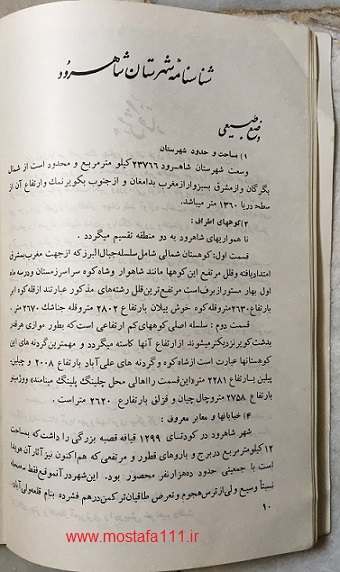 شناسنامه شهرستان شاهرود
وضع طبیعی
۱) مساحت و حدود شهرستان
وسعت شهرستان شاهرود ۲۳۷۶۶ کیلو مترمربع و محدود است از شمال
بگرگان و از مشرق بسبزوار از مغرب بدامغان و از جنوب بکویر نمك و ارتفاع آن از
سطح دریا ۱۳۶۰ متر میباشد.
۲) کوههای اطراف:
نا همواریهای شاهرود به دو منطقه تقسیم میگردد.
قسمت اول: کوهستان شمالی شامل سلسله جبال البرز که از جهت مغرب بمشرق
امتداد یافته و قلل مرتفع این کوهها مانند شاهوار و شاه کوه سراسر زمستان و در سه ماه
اول بهار مستور از برف است مرتفع‌ترین قلل رشته‌های مذکور عبارتند از قله کوه ابر
بارتفاع ۲۶۳۰ متر و قله کوه خوش ییلاق بارتفاع ۲۸۰۲ متر و قله جناشك ۲۷۰ متر.
قسمت دوم: سلسله اصلی کوههای کم ارتفاعی است که بطور موازی هر قدر
بدشت کویر نزدیکتر میشوند از ارتفاع آنها کاسته میگردد و مهمترین گردنه های این
کوهستانها عبارت است از شاه کوه و گردنه های علی‌آباد بارتفاع ۲۰۰۸ و چیلین-
پیلین بارتفاع ۲۲۸۱ متر (این قسمت را اهالی محل چلینگ پلینگ مینامند) و وزمینو
بارتفاع ۲۷۵۸ متر و چال چیان و قزلق بارتفاع ۲۶۲۰ متر است.
۴) خیابانها و معابر معروف:
شهر شاهرود در کودتای ۱۲۹۹ قیافه قصبه بزرگی را داشت که بمساحت
۱۲ کیلومتر مربع در برج و باروهای قطور و مرتفعی که هم اکنون نیز آثار آن هویدا
است با جمعیتی حدود ده هزار نفر محصور بود. این شهر در آنموقع فقط سه محله
نسبتاً وسیع ولی از ترس هجوم و تعرض طاقیان ترکمن در هم فشرده بنام قلعه، ولی‌آباد،
۱۰
www.mostafa111.ir